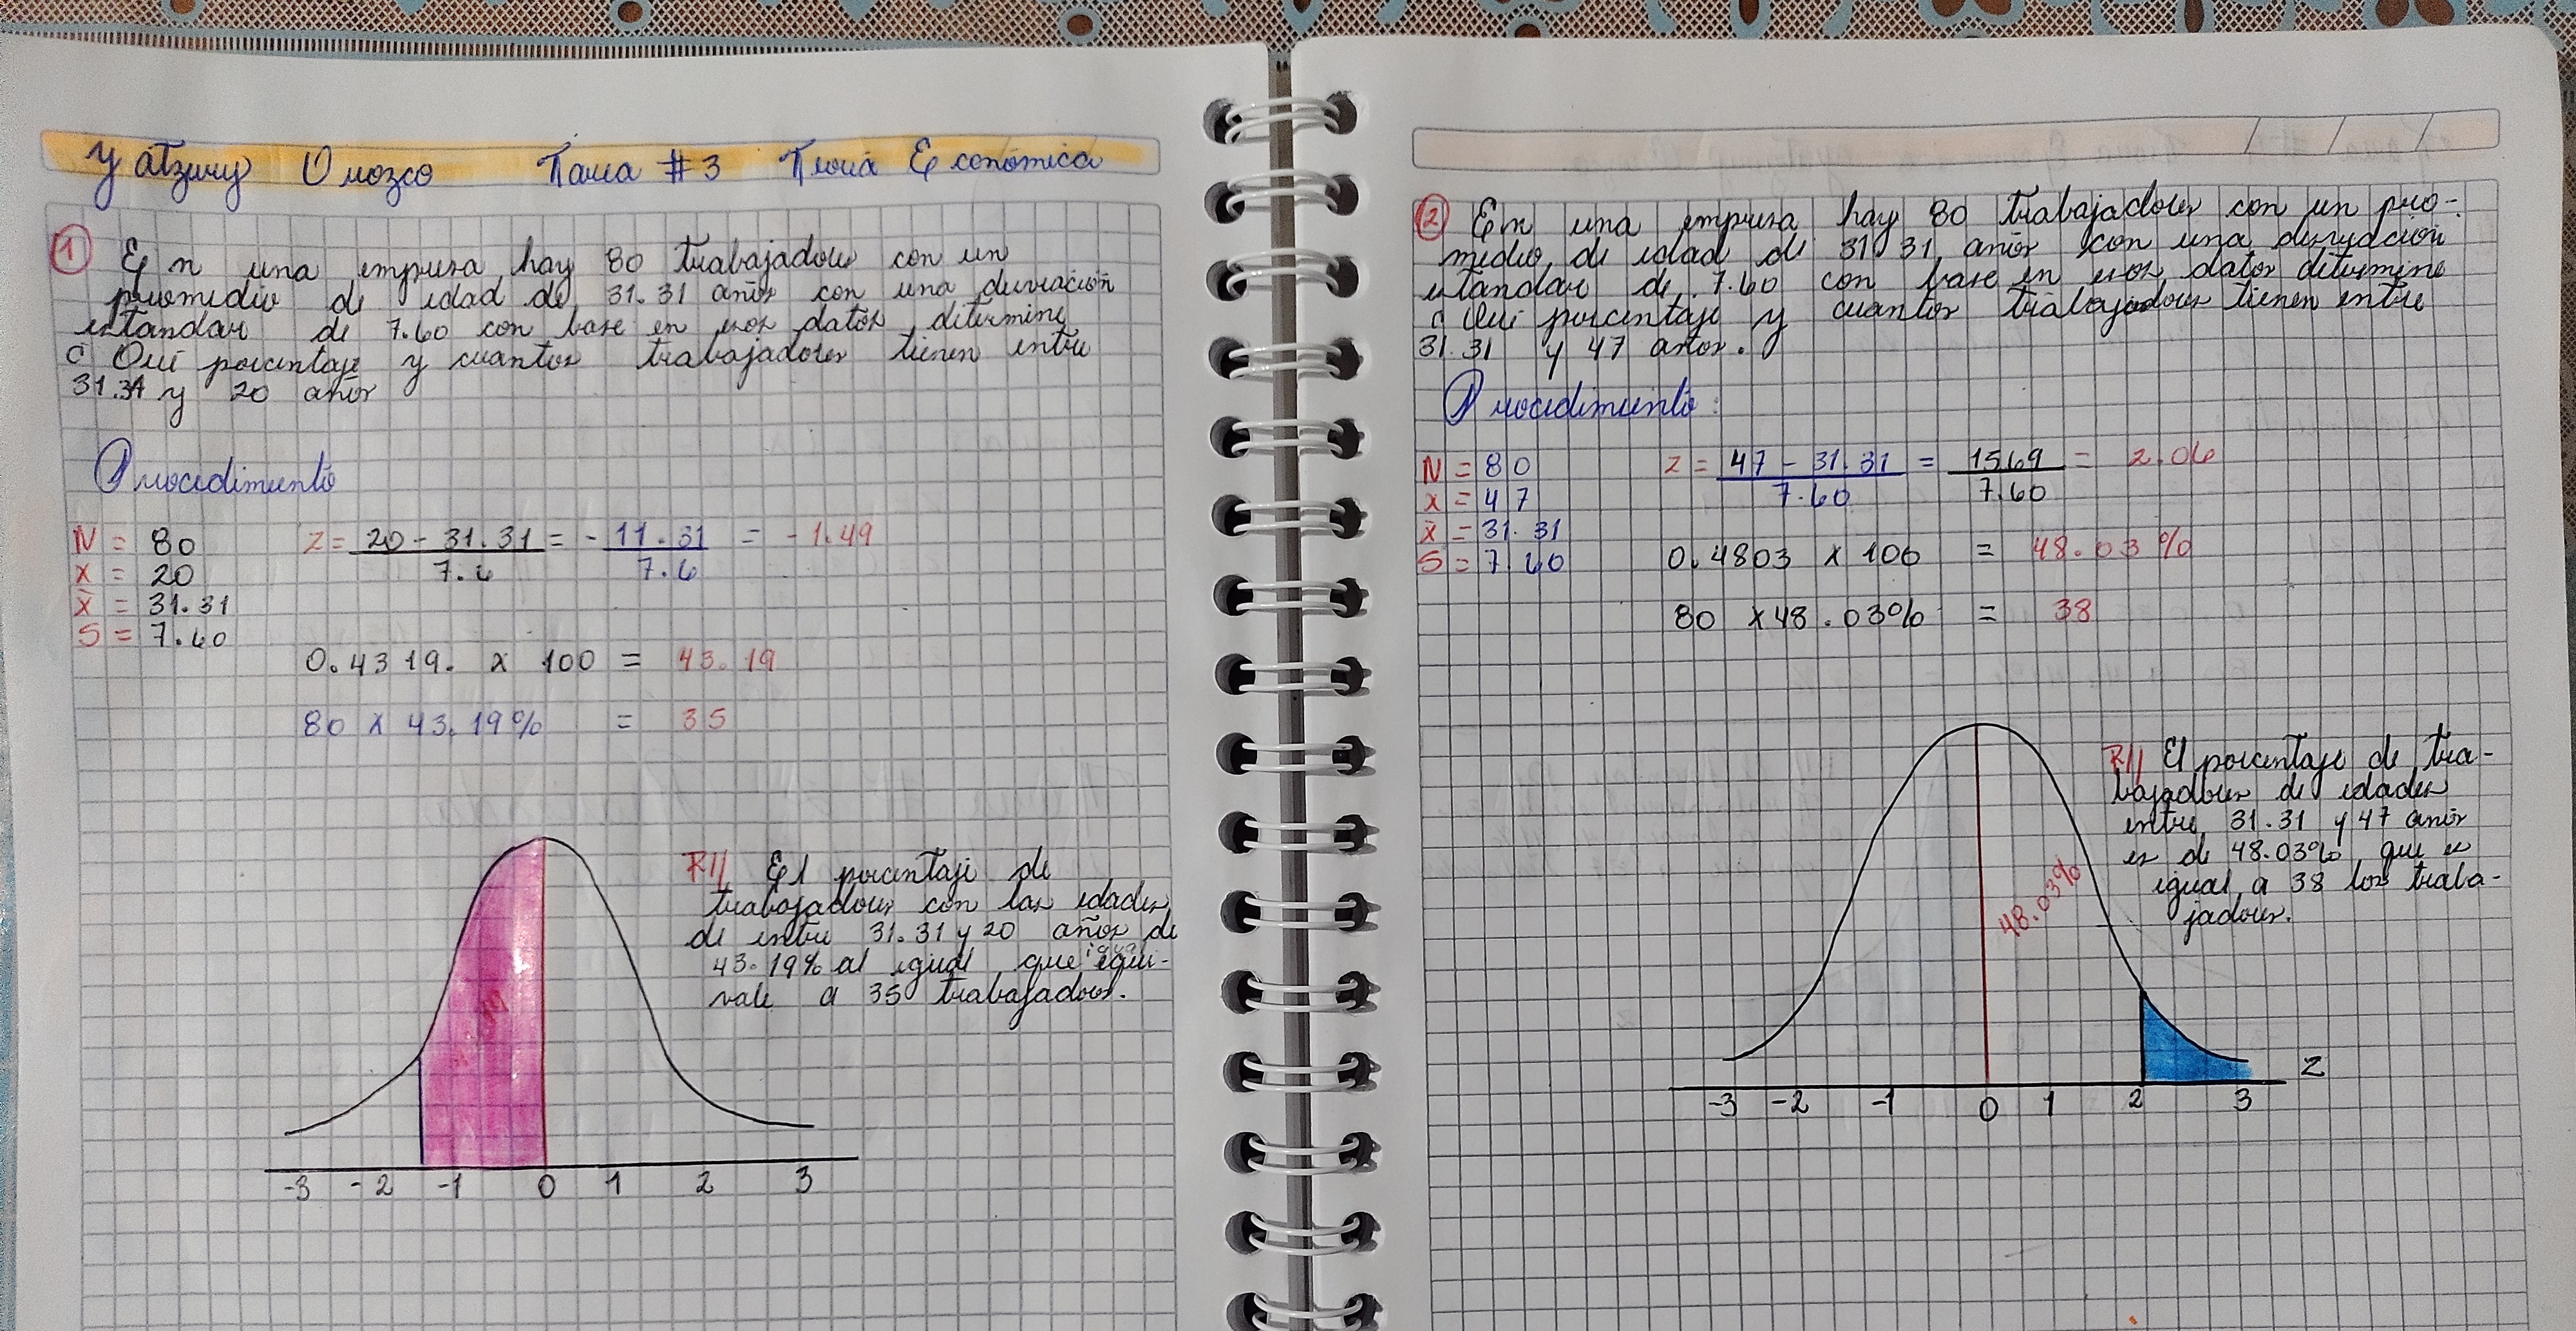 Yatzury Orozco Tarea #3 Teoria Económica
1 En una empresa hay 80 trabajadores con un
promedio de edad de 31.31 años con una desviación
estandar de 7.60 con base en esos datos determine
¿ Qué porcentaje y cuantos trabajadores tienen entre
31.31 y 20 años
Procedimiento
N = 80
x = 20
x̄ = 31.31
S = 7.60
z = 20 - 31.31 / 7.6 = - 11.31 / 7.6 = - 1.49
0.4319. x 100 = 43.19
80 x 43.19% = 35
R// El porcentaje de
trabajadores con las edades
de entre 31.31 y 20 años de
43.19% al igual que equi-
vale a 35 trabajadores.
-3 -2 -1 0 1 2 3
2 En una empresa hay 80 trabajadores con un pro-
medio de edad de 31.31 años con una desviación
estandar de 7.60 con base en esos datos determine
¿ Qué porcentaje y cuantos trabajadores tienen entre
31.31 y 47 años.
Procedimiento:
N = 80
x = 47
x̄ = 31.31
S = 7.60
z = 47 - 31.31 / 7.60 = 15.69 / 7.60 = 2.06
0.4803 x 100 = 48.03%
80 x 48.03% = 38
R// El porcentaje de tra-
bajadores de edades
entre 31.31 y 47 años
es de 48.03% que es
igual a 38 los traba-
jadores.
48.03%
-3 -2 -1 0 1 2 3 Z